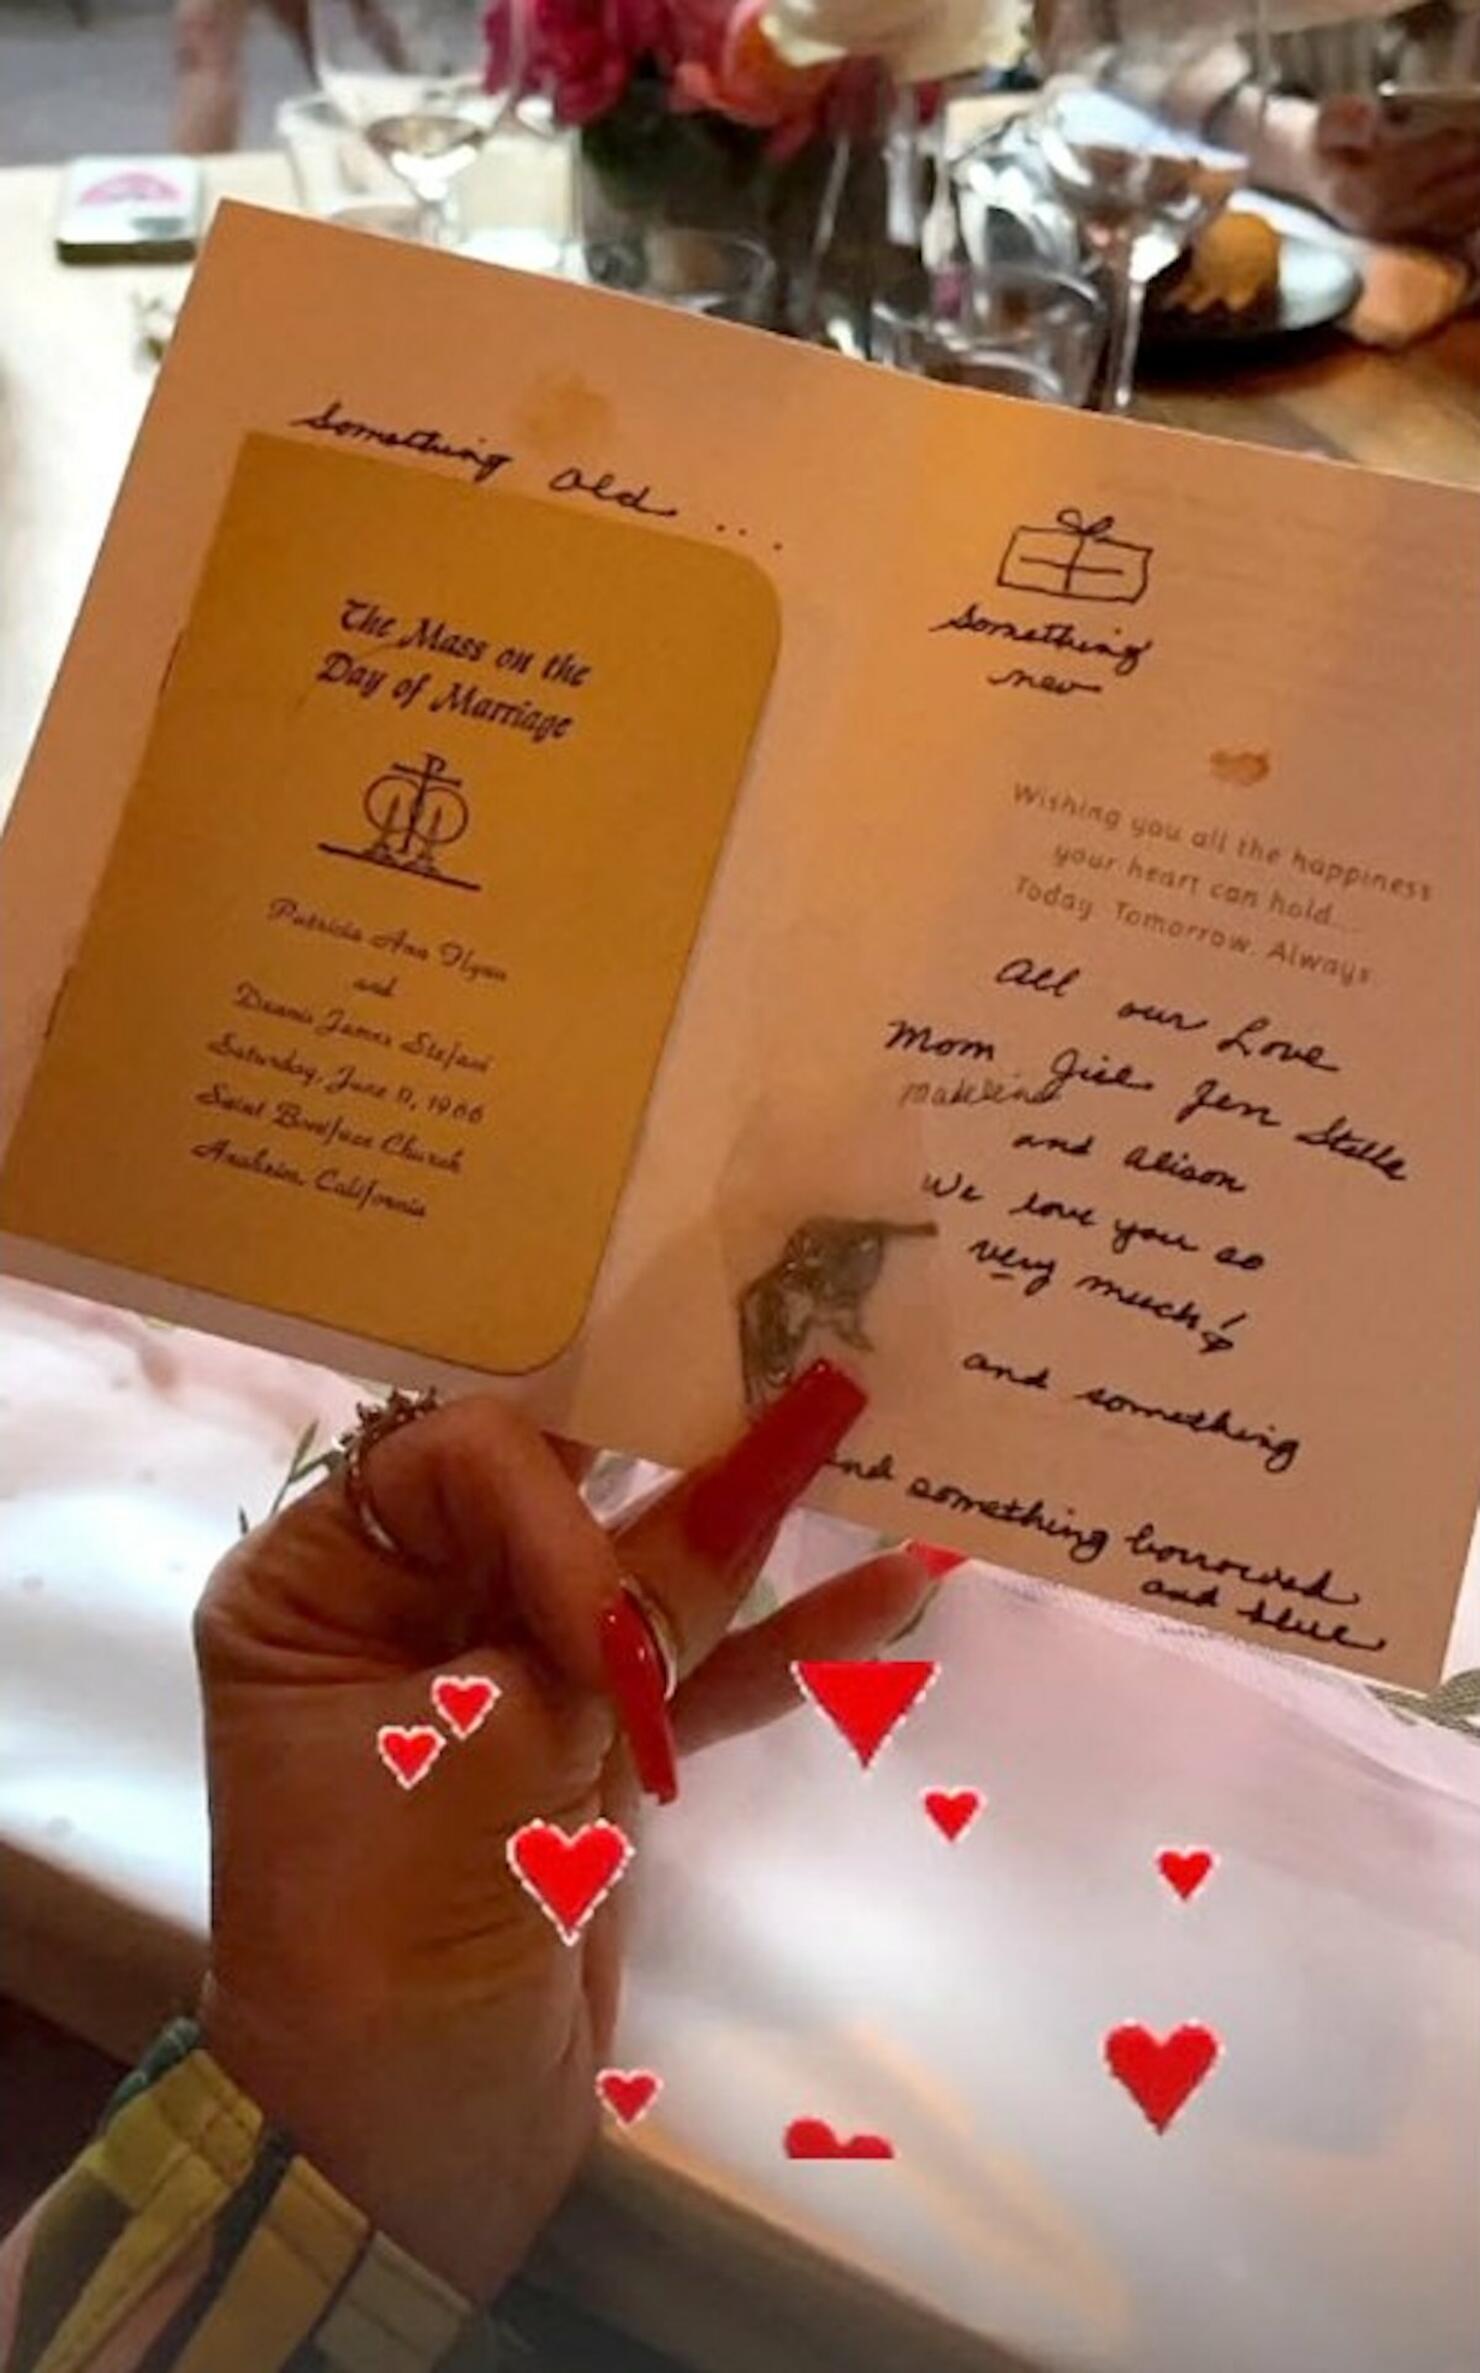 Something old...
The Mass on the
Day of Marriage
Patricia Ann Flynn
and
Dennis James Stefani
Saturday, June 11, 1966
Saint Boniface Church
Anaheim, California
Something
new
Wishing you all the happiness
your heart can hold...
Today. Tomorrow. Always.
All our Love
Mom Jill Jen Stella
Madeline
and Alison
We love you so
very much!
and something
and something borrowed
and blue